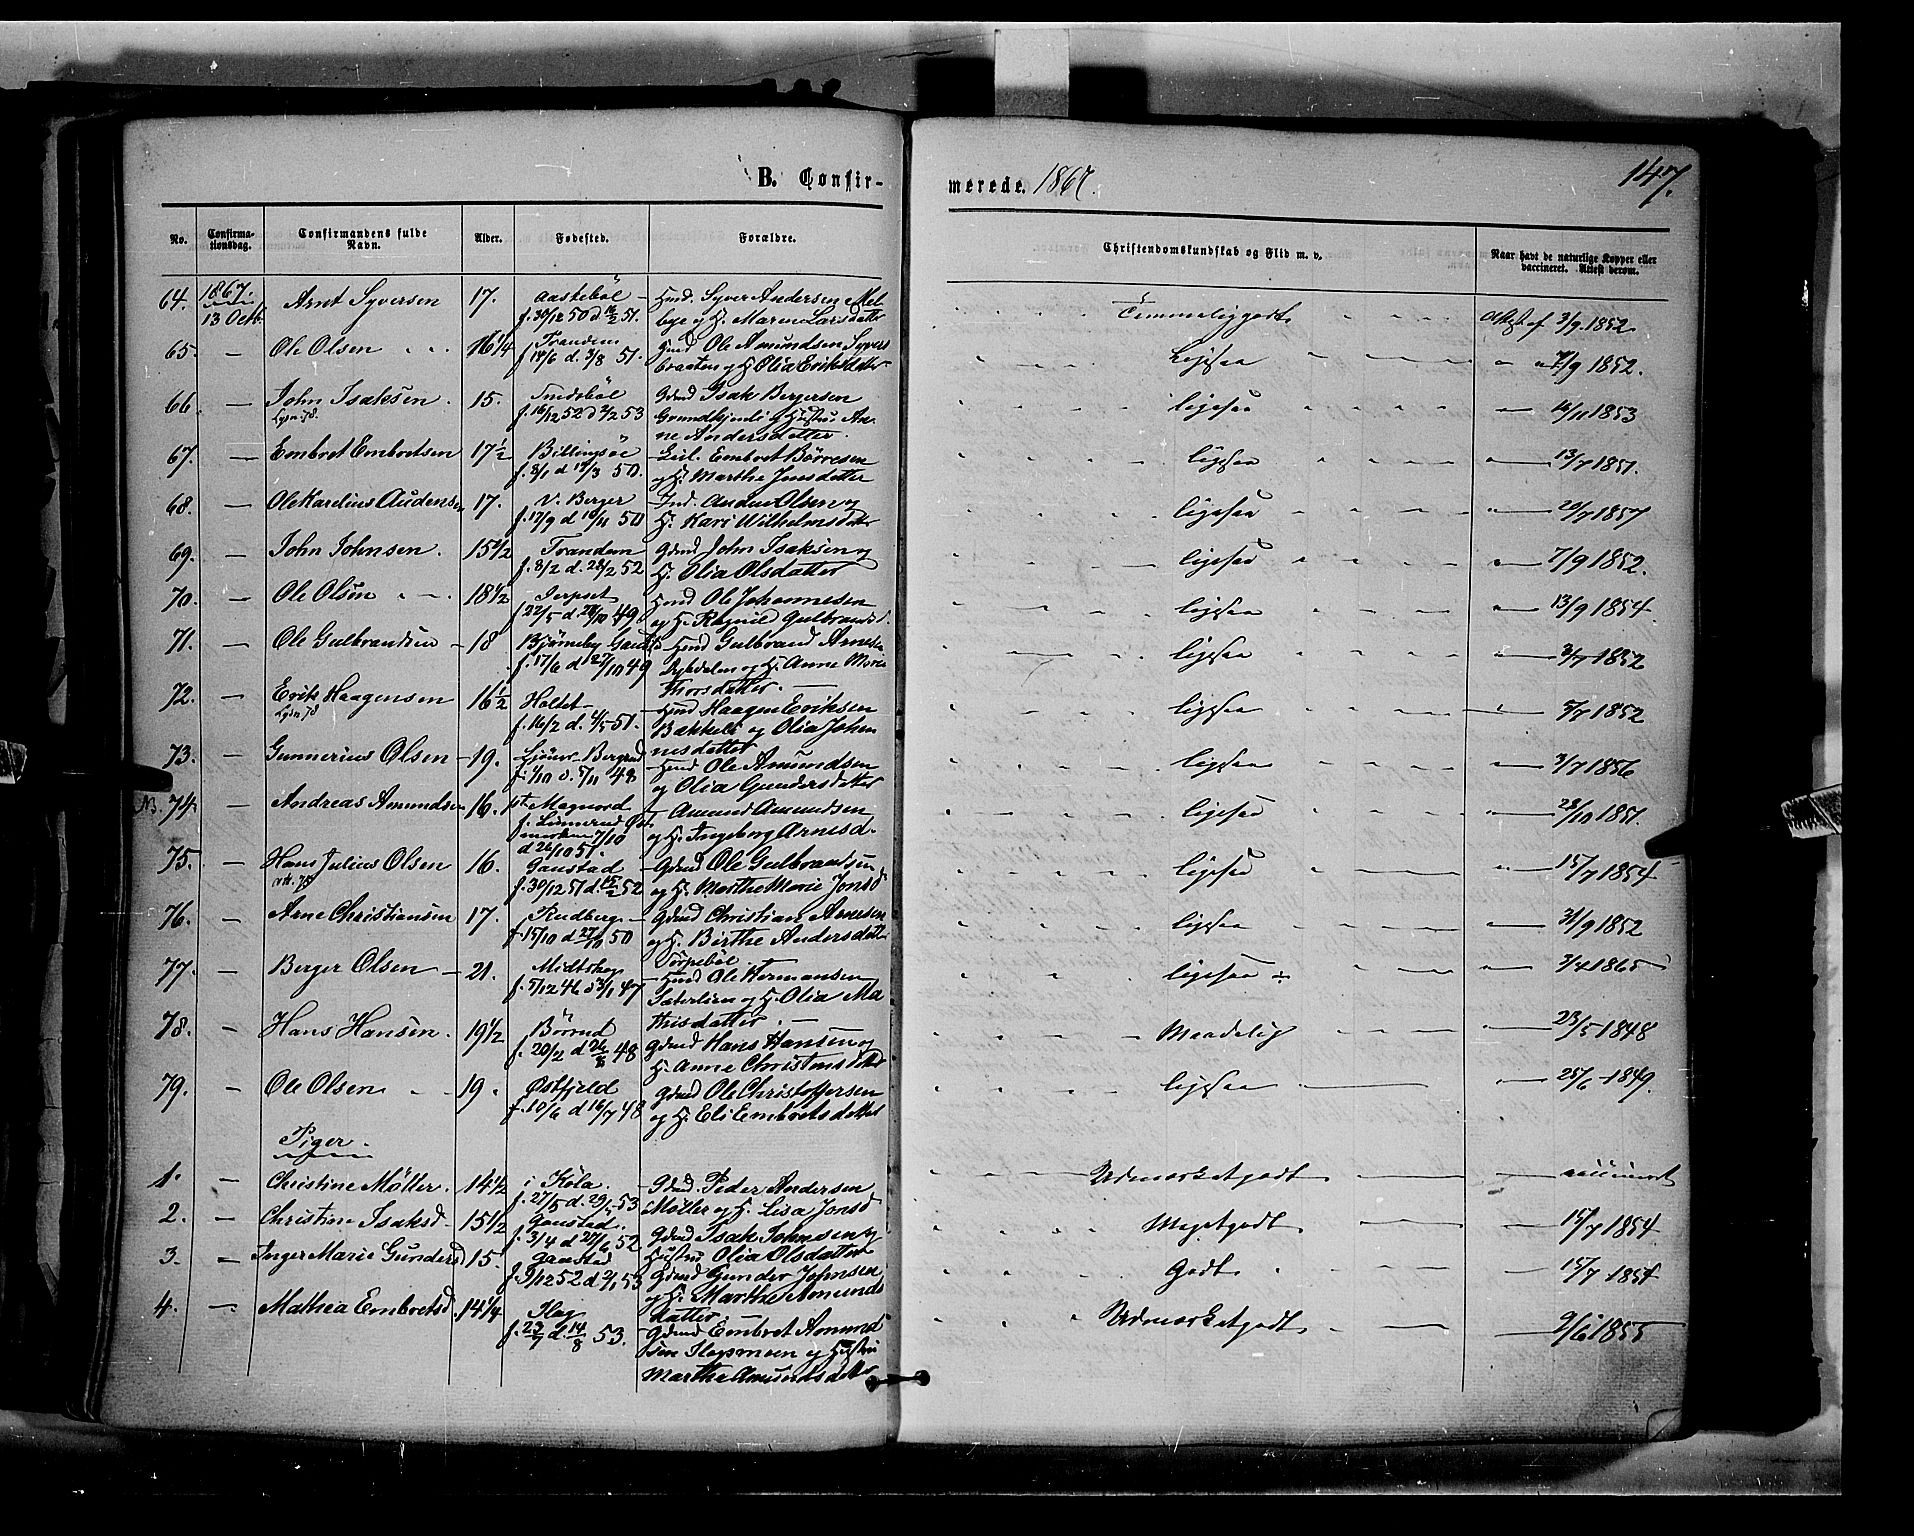 B. Confir-
merede. 1867.
147.
No.
Confirma-
tionsdag.
Confirmandens fulde
Navn.
Alder.
Fødested.
Forældre.
Christendomskundskab og Flid m. v.
Naar havt de naturlige Kopper eller
vaccineret. Attest derom.
64. 1867. 13 Octb. Arnt Syversen 17. Aastebøl Hmd. Syver Andersen Mel-
f. 30/12 50 d 16/2 51. bye og H. Maren Larsdatter Temmeliggodt Attest af 3/9 1852.
65. — Ole Olsen 16 1/4 Trandem Gmd Ole Amundsen Syvers
f. 14/6 d. 3/8 51. braaten og H Olia Eriksdatter Ligesaa 7/9 1852.
66 — John Isaksen. 15. Smedsbøl Gdmd Isak Bergersen
f. 16/12 52 d 2/2 53 Grundkjendl og Hustru An-
ne Andersdatter. ligesaa 14/11 1853
67. — Embret Embretsen 17 1/2 Billingsøe Leil. Embret Børresen
f. 8/1 d 17/3 50. og H. Marthe Jonsdatter ligesaa 13/7 1851.
68. — Ole Karelius Audensen 17. V. Berger Ind. Auden Olsen og
f. 17/9 d 10/11 50 H. Kari Wilhelmsdatter ligesaa 20/7 1857
69. — John Johnsen. 15 1/2 Trandem Gdmd John Isaksen og
f. 8/2 d. 28/2 52 H. Olia Olsdatter ligesaa 7/9 1852.
70. — Ole Olsen 18 1/2 Jerpset Hmd Ole Johannesen
f. 22/5 d. 28/10 49 og H. Ragnild Gulbrandsd. ligesaa 13/9 1854.
71. — Ole Gulbrandsen 18 Bjørneby Gaustad Hmd Gulbrand Arnesen
f. 17/6 d 27/10 49 og H. Anne Marie
Thorsdatter. ligesaa 3/7 1852
72. — Erik Haagensen 16 1/2 Holtet Hmd Haagen Eriksen
f. 16/2 d. 4/5 51. Bakkeli og Olia Johan-
nesdatter ligesaa 5/7 1852
73. — Gunnerius Olsen 19. Bergerud Hmd Ole Amundsen
f. 1/10 d. 5/11 48 og Olia Gundersdatter ligesaa 3/7 1856
NB. 74. — Andreas Amundsen 16. pt Magnord Amund Amundsen
f. Linnerud Øst
marken 7/10 og H. Ingeborg Arnesd.
d 26/10 51. ligesaa 28/10 1851.
75. — Hans Julius Olsen 16. Gaustad Gdmd Ole Gulbrandsen
f. 30/12 51 d. 15/2 52 og H. Marthe Marie Jonsd ligesaa 15/7 1854
76. — Arne Christiansen 17. Rudberg Gdmd Christian Arnesen
f. 15/10 d 27/10 50 og H. Birthe Andersdatter ligesaa 3/9 1852
Torpebøl.
77. — Berger Olsen 21. Midtskog Hmd Ole Hermansen
f. 5/12 46 d 3/1 47 Sæterlien og H. Olia Ma
thisdatter. ligesaa 3/4 1865
78. — Hans Hansen. 19 1/2 Børrud Gdmd Hans Hansen og
f. 20/2 d 26/3 48 H. Anne Christensdatter Maadelig 23/5 1848
79. — Ole Olsen 19. Østfjeld Gdmd Ole Christophersen
f. 10/6 d 16/7 48 og H. Eli Embretsdatter ligesaa 25/6 1849.
Piger.
1. — Christine Møller. 14 1/2 i Køla. Gdmd. Peder Andersen
f. 27/5 d. 29/5 53 Møller og H. Lisa Jonsd Udmærketgodt
2. — Christine Isaksd. 15 1/2 Gaustad. Gdmd Isak Johnsen og
f. 3/4 d 27/6 52 Hustru Olia Olsdatter Megetgodt 15/7 1854.
3. — Inger Marie Gundersd 15. Gaustad Gdmd Gunder Johnsen
f. 9/12 52 d 2/1 53 og H. Marthe Amunds
datter Godt 15/7 1854
4. — Mathea Embretsd. 14 1/4 Flog Gdmd Embret Amund
f. 23/7 d. 14/8 53. sen Flogsmoen og Hustru
Marthe Amundsdatter Udmærketgodt 9/6 1855